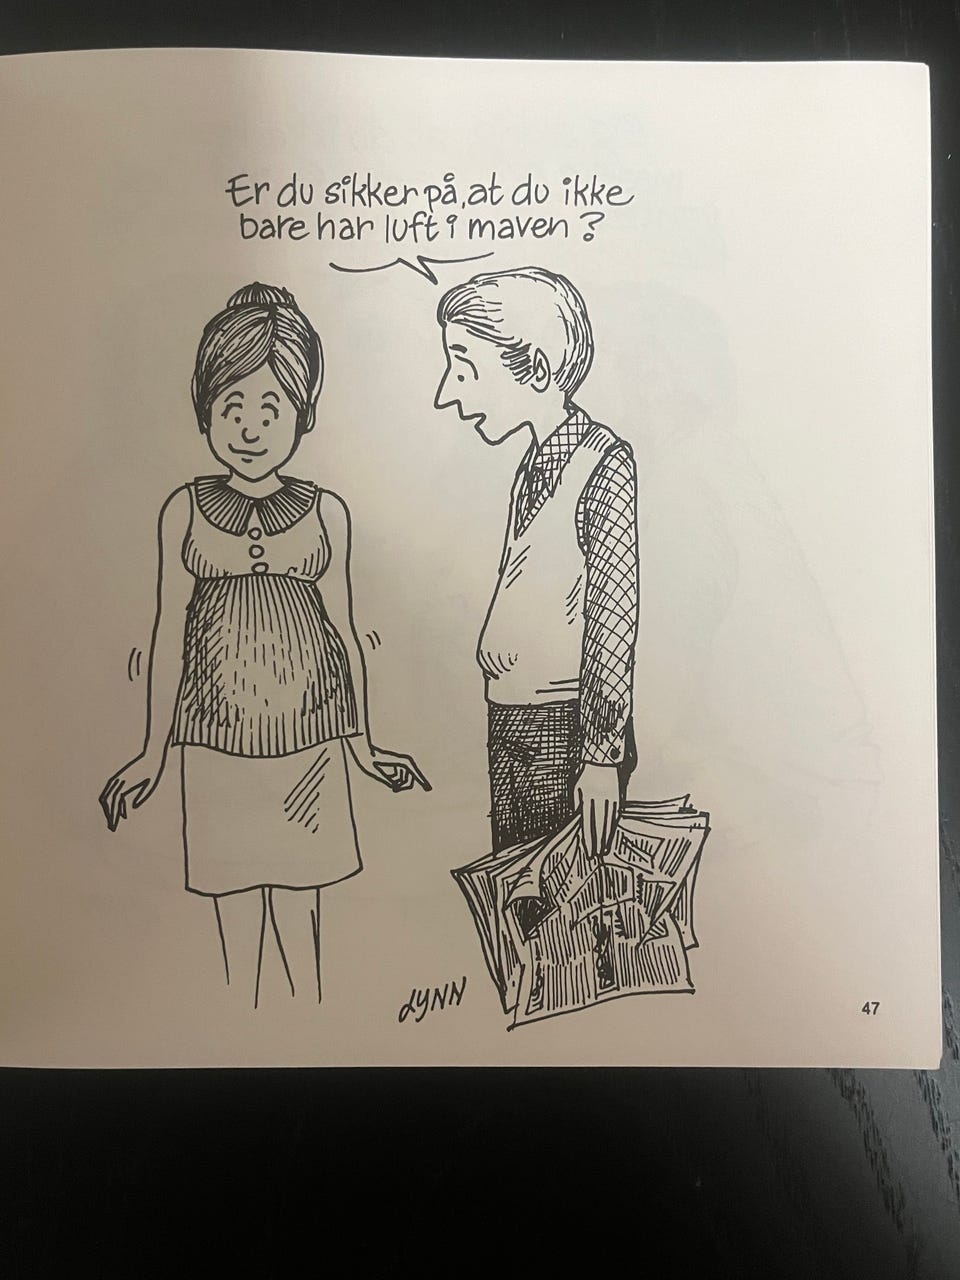 Er du sikker på, at du ikke
bare har luft i maven?
LYNN
47